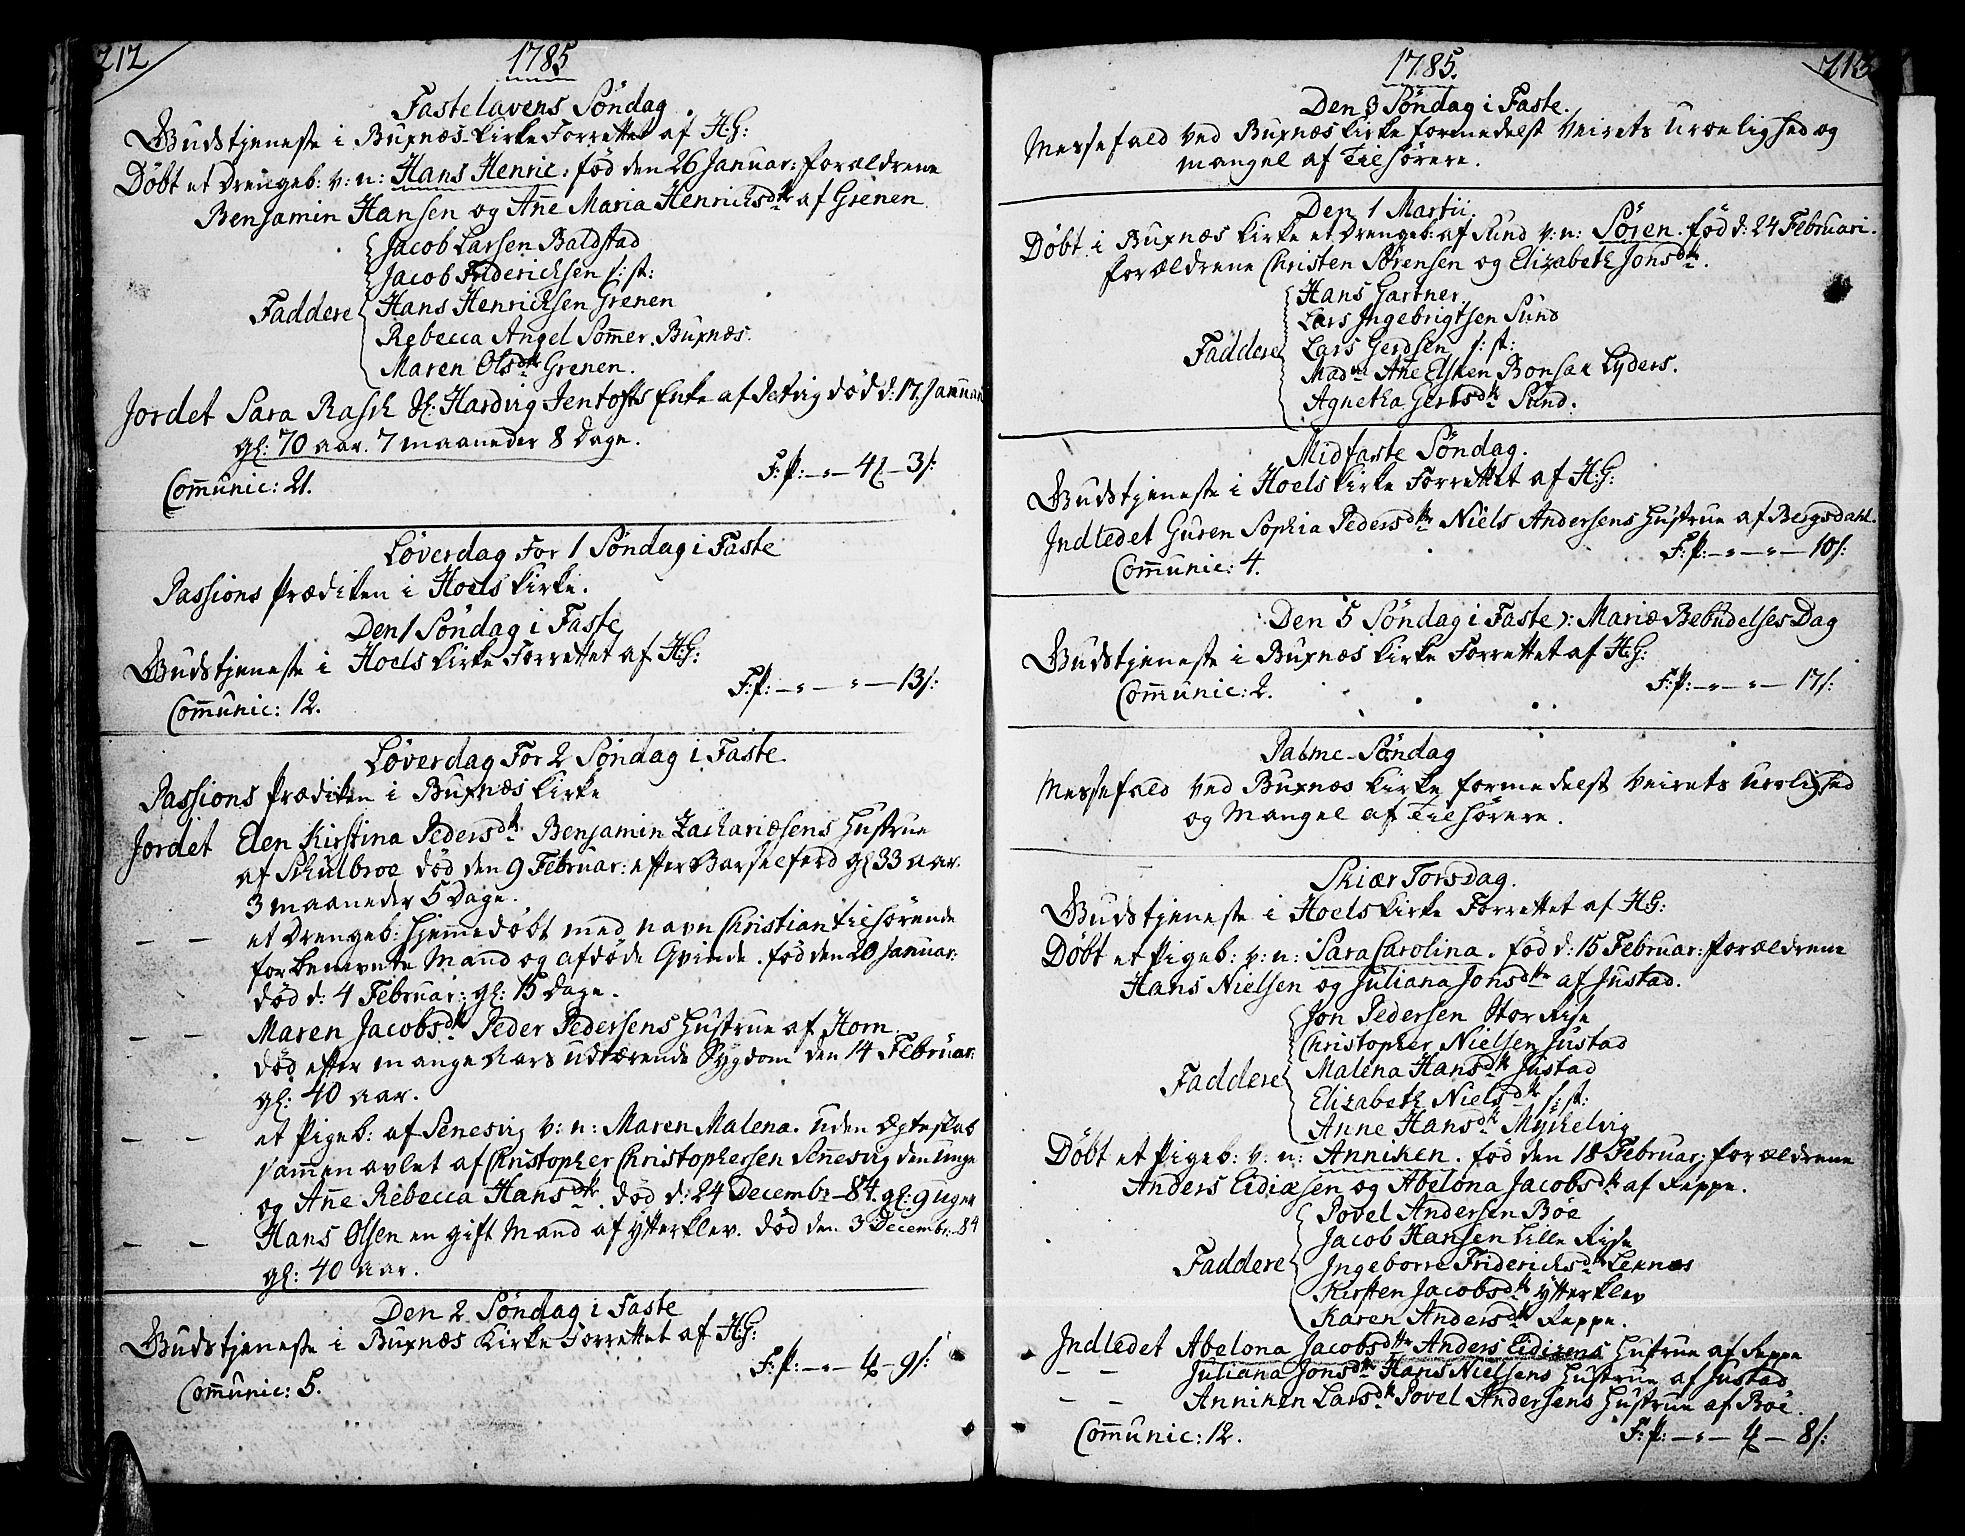 212
1785
Fastelavens Søndag
Gudstjeneste i Buxnæs Kirke Forrettet af H:G:
Døbt et Drengeb: v: n: Hans Henric, fød den 26 Januar: forældrene
Benjamin Hansen og Añe Maria Henrichsdtr af Grenen
Jacob Larsen Baldstad
Jacob Fridericksen s: st:
Faddere Hans Henricksen Grenen
Rebecca Angel Som̃er. Buxnæs.
Maren Olsdtr Grenen.
Jordet Sara Rasch Sl: Hardvig Jentofts Enke af Petvig død d: 17. Januari
gl: 70 aar. 7 maaneder 8 Dage.
F: P: – " – 4 – 3 s:
Com̃unic: 21.
Løverdag For 1 Søndag i Faste
Passions Prædiken i Hoels Kirke.
Den 1 Søndag i Faste
Gudstjeneste i Hoels Kirke Forrettet af H:G:
F: P: – " – " – 13 s:
Com̃unic: 12.
Løverdag For 2 Søndag i Faste
Passions Prædiken i Buxnæs Kirke
Jordet Elen Kirstina Pedersdtr Benjamin Zachariæsens Hustrue
af Schulbroe død den 9 Februar: efter Barselferd gl 33 aar
3 maaneder 5 Dage.
– – et Drengeb: hjem̃edøbt med navn Christian tilhørende
forbenævnte Mand og afdøde Qvinde. fød den 20 Januar:
død d: 4 Februar: gl: 15 Dage.
– – Maren Jacobsdtr Peder Pedersens Hustrue af Horn
død efter mange Aars udtærende Sygdom den 14 Februar:
gl: 40 aar.
– – et Pigeb: af Senesvig v: n: Maren Malena. uden Ægteskab
sam̃en avlet af Christopher Christophersen Señesvig den unge
og Añe Rebecca Hansdtr. død d: 24 Decembr – 84. gl: 9 uger
– – Hans Olsen en gift Mand af Ytterklev. død den 3 Decembr – 84
gl: 40 aar.
Den 2 Søndag i Faste
Gudstjeneste i Buxnæs Kirke Forrettet af H:G:
F: P: – " – 4 – 9 s:
Com̃unic: 5.
213
1785.
Den 3 Søndag i Faste.
Messefald ved Buxnæs Kirke formedelst Veirets Uroelighed og
mangel af Tilhørere.
Den 1 Martii.
Døbt i Buxnæs Kirke et Drengeb: af Sund v: n: Søren. fød d: 24 Februari.
forældrene Christen Sørensen og Elizabeth Jonsdtr.
Hans Gartner
Lars Ingebrigtsen Sund
Faddere Lars Gerdsen s: st:
Madme Añe Elsken Bonsak Lyders.
Agnetha Gertsdtr Sund.
Midfaste Søndag.
Gudstjeneste i Hoels Kirke Forrettet af H:G:
Indledet Guren Sophia Pedersdtr Niels Andersens Hustrue af Bergsdahl.
F: P: – " – " – 10 s:
Com̃unic: 4.
Den 5 Søndag i Faste ɔ: Mariæ Bebudelses Dag
Gudstjeneste i Buxnæs Kirke Forrettet af H:G:
F: P: – " – " – 17 s:
Com̃unic: 2.
Palme-Søndag
Messefald ved Buxnæs Kirke formedelst Veirets Urolighed
og Mangel af Tilhørere.
Skiær Torsdag.
Gudstjeneste i Hoels Kirke Forrettet af H:G:
Døbt et Pigeb: v: n: Sara Carolina. fød d: 15 Februar: forældrene
Hans Nielsen og Juliana Jonsdtr af Justad.
Jon Pedersen Stor Rise
Christopher Nielsen Justad
Faddere Malena Hansdtr Justad
Elizabeth Nielsdtr s: st:
Anne Hansdtr Myckelvig
Døbt et Pigeb: v: n: Anniken. fød den 18 Februar: forældrene
Anders Eidiæsen og Abelona Jacobsdtr af Reppe.
Povel Andersen Böe
Jacob Hansen Lille Rise
Faddere Ingeborre Fridericksdtr Leknæs
Kirsten Jacobsdtr Ytterklev
Karen Andersdtr Reppe.
Indledet Abelona Jacobsdtr Anders Eidisens Hustrue af Reppe
– – Juliana Jonsdtr Hans Nielsens Hustrue af Justad
– – Anniken Larsdtr Povel Andersens Hustrue af Böe.
Com̃unic: 12.
F: P: – " – 4 – 8 s: